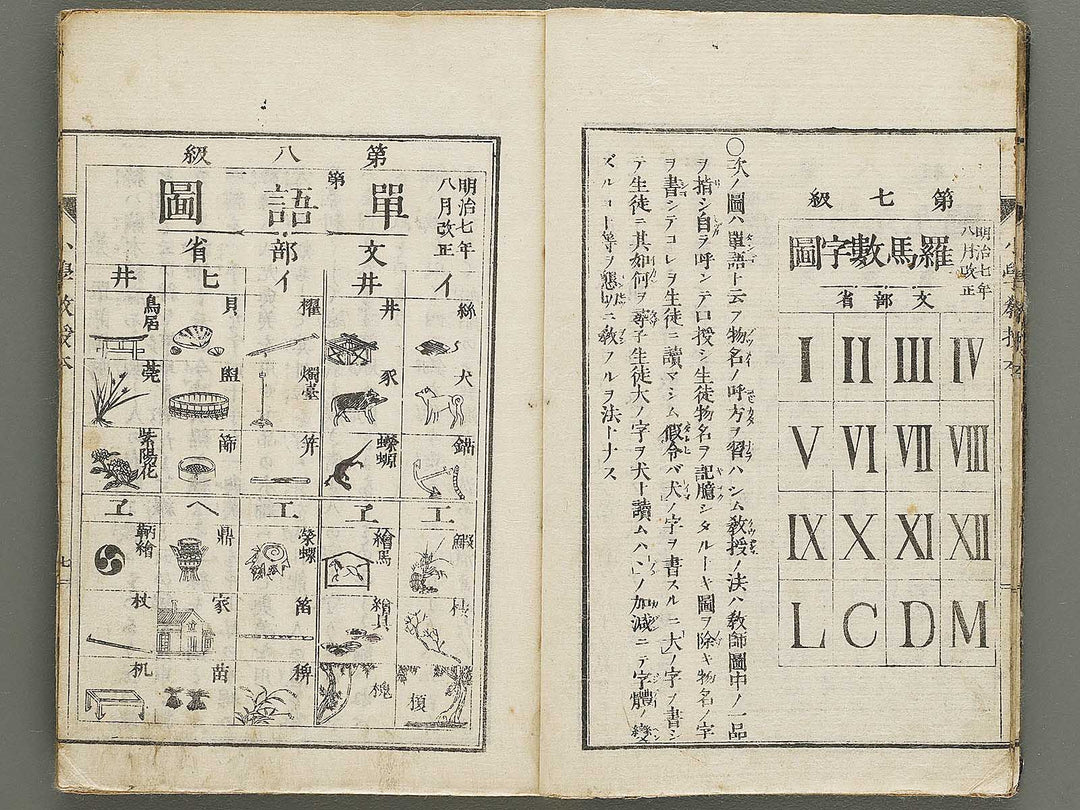 第七級
明治七年
八月改正
羅馬數字圖
文部省
I II III IV
V VI VII VIII
IX X XI XII
L C D M
〇次ノ圖ハ單語ト云フ物名ノ呼方ヲ習ハシム敎授ノ法ハ敎師圖中ノ一品
ヲ指シ自ラ呼ンテ口授シ生徒物名ヲ記臆シタルトキ圖ヲ除キ物名ノ字
ヲ書シテコレヲ生徒ニ讀マシム假令バ犬ノ字ヲ書スルニ大ノ字ヲ書シ
テ生徒ニ其如何ヲ尋子生徒大ノ字ヲ犬ト讀ムハ、ノ加減ニテ字體ノ變
ズルコト等ヲ懇ロニ敎フルヲ法トナス
第八級
明治七年
八月改正
第一
單語圖
文部省
イ 井 イ ヒ 井
絲 井 櫂 貝 鳥居
犬 豕 燭臺 盥 莞
錨 蠑螈 笄 篩 紫陽花
エ ヱ エ ヘ ヱ
鰕 繪馬 榮螺 鼎 鞆繪
枝 繪具 笛 家 杖
槐 稗 苗 机
小學敎授本
七